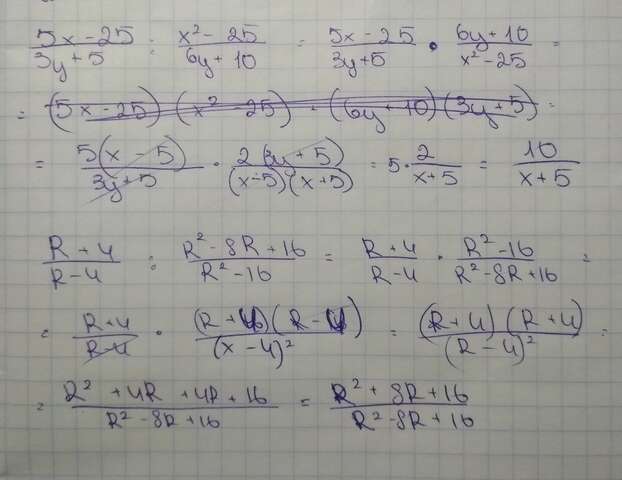 5x-25/3y+5 : x²-25/6y+10 = 5x-25/3y+5 · 6y+10/x²-25 =
= (5x-25)(x²-25) · (6y+10)(3y+5) =
= 5(x-5)/3y+5 · 2(3y+5)/(x-5)(x+5) = 5·2/x+5 = 10/x+5
R+4/R-4 : R²-8R+16/R²-16 = R+4/R-4 · R²-16/R²-8R+16 =
= R+4/R-4 · (R+4)(R-4)/(x-4)² = (R+4)(R+4)/(R-4)² =
= R²+4R+4R+16/R²-8R+16 = R²+8R+16/R²-8R+16